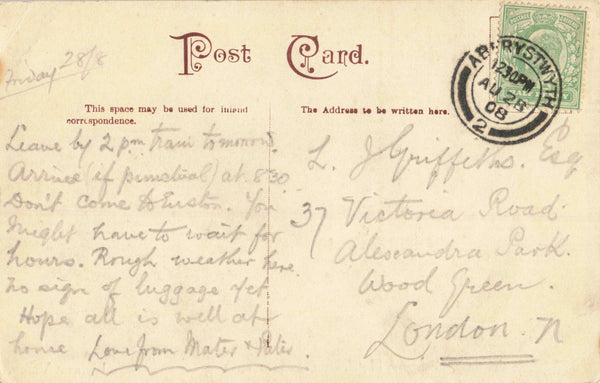 Friday 28/8
Post Card.
ABERYSTWYTH
12.30PM
AU 28
08
2
This space may be used for inland
correspondence.
The Address to be written here.
Leave by 2 pm train tomorrow
Arrive (if punctual) at 8.30
Don't come to Euston. You
might have to wait for
hours. Rough weather here.
no sign of luggage yet
Hope all is well at
home Love from Mater & Pater.
L. J Griffiths. Esq
37 Victoria Road.
Alexandra Park.
Wood Green.
London. N